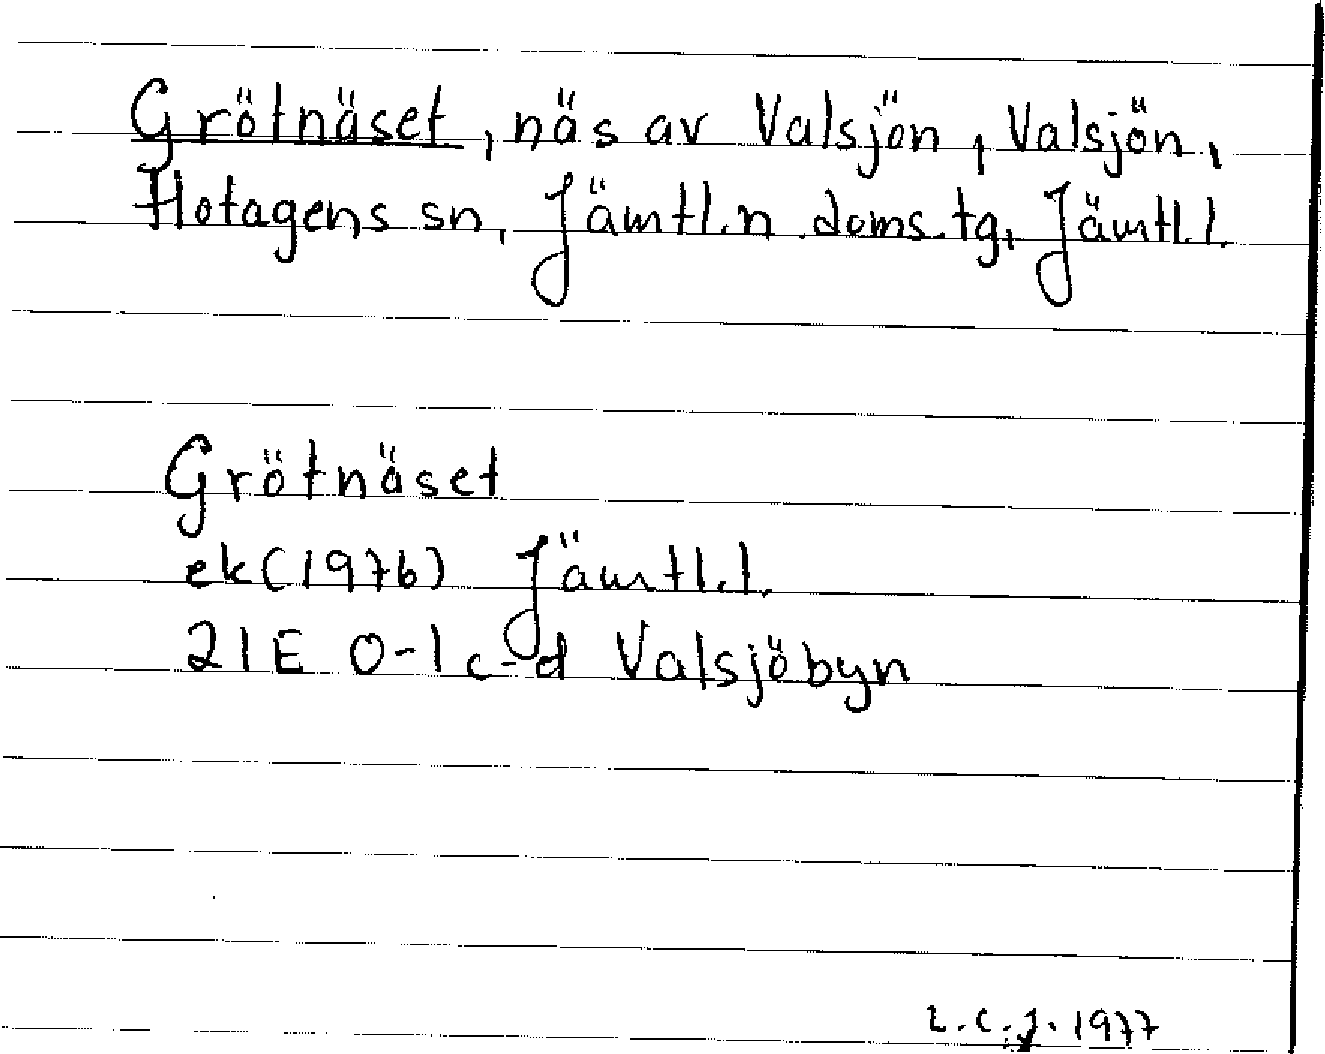 Grötnäset, näs av Valsjön, Valsjön,
Hotagens sn, Jämtl.n doms.tg, Jämtl.l.
Grötnäset
ek(1976) Jämtl.l.
21E 0-1c-d Valsjöbyn
L.C.J. 1977